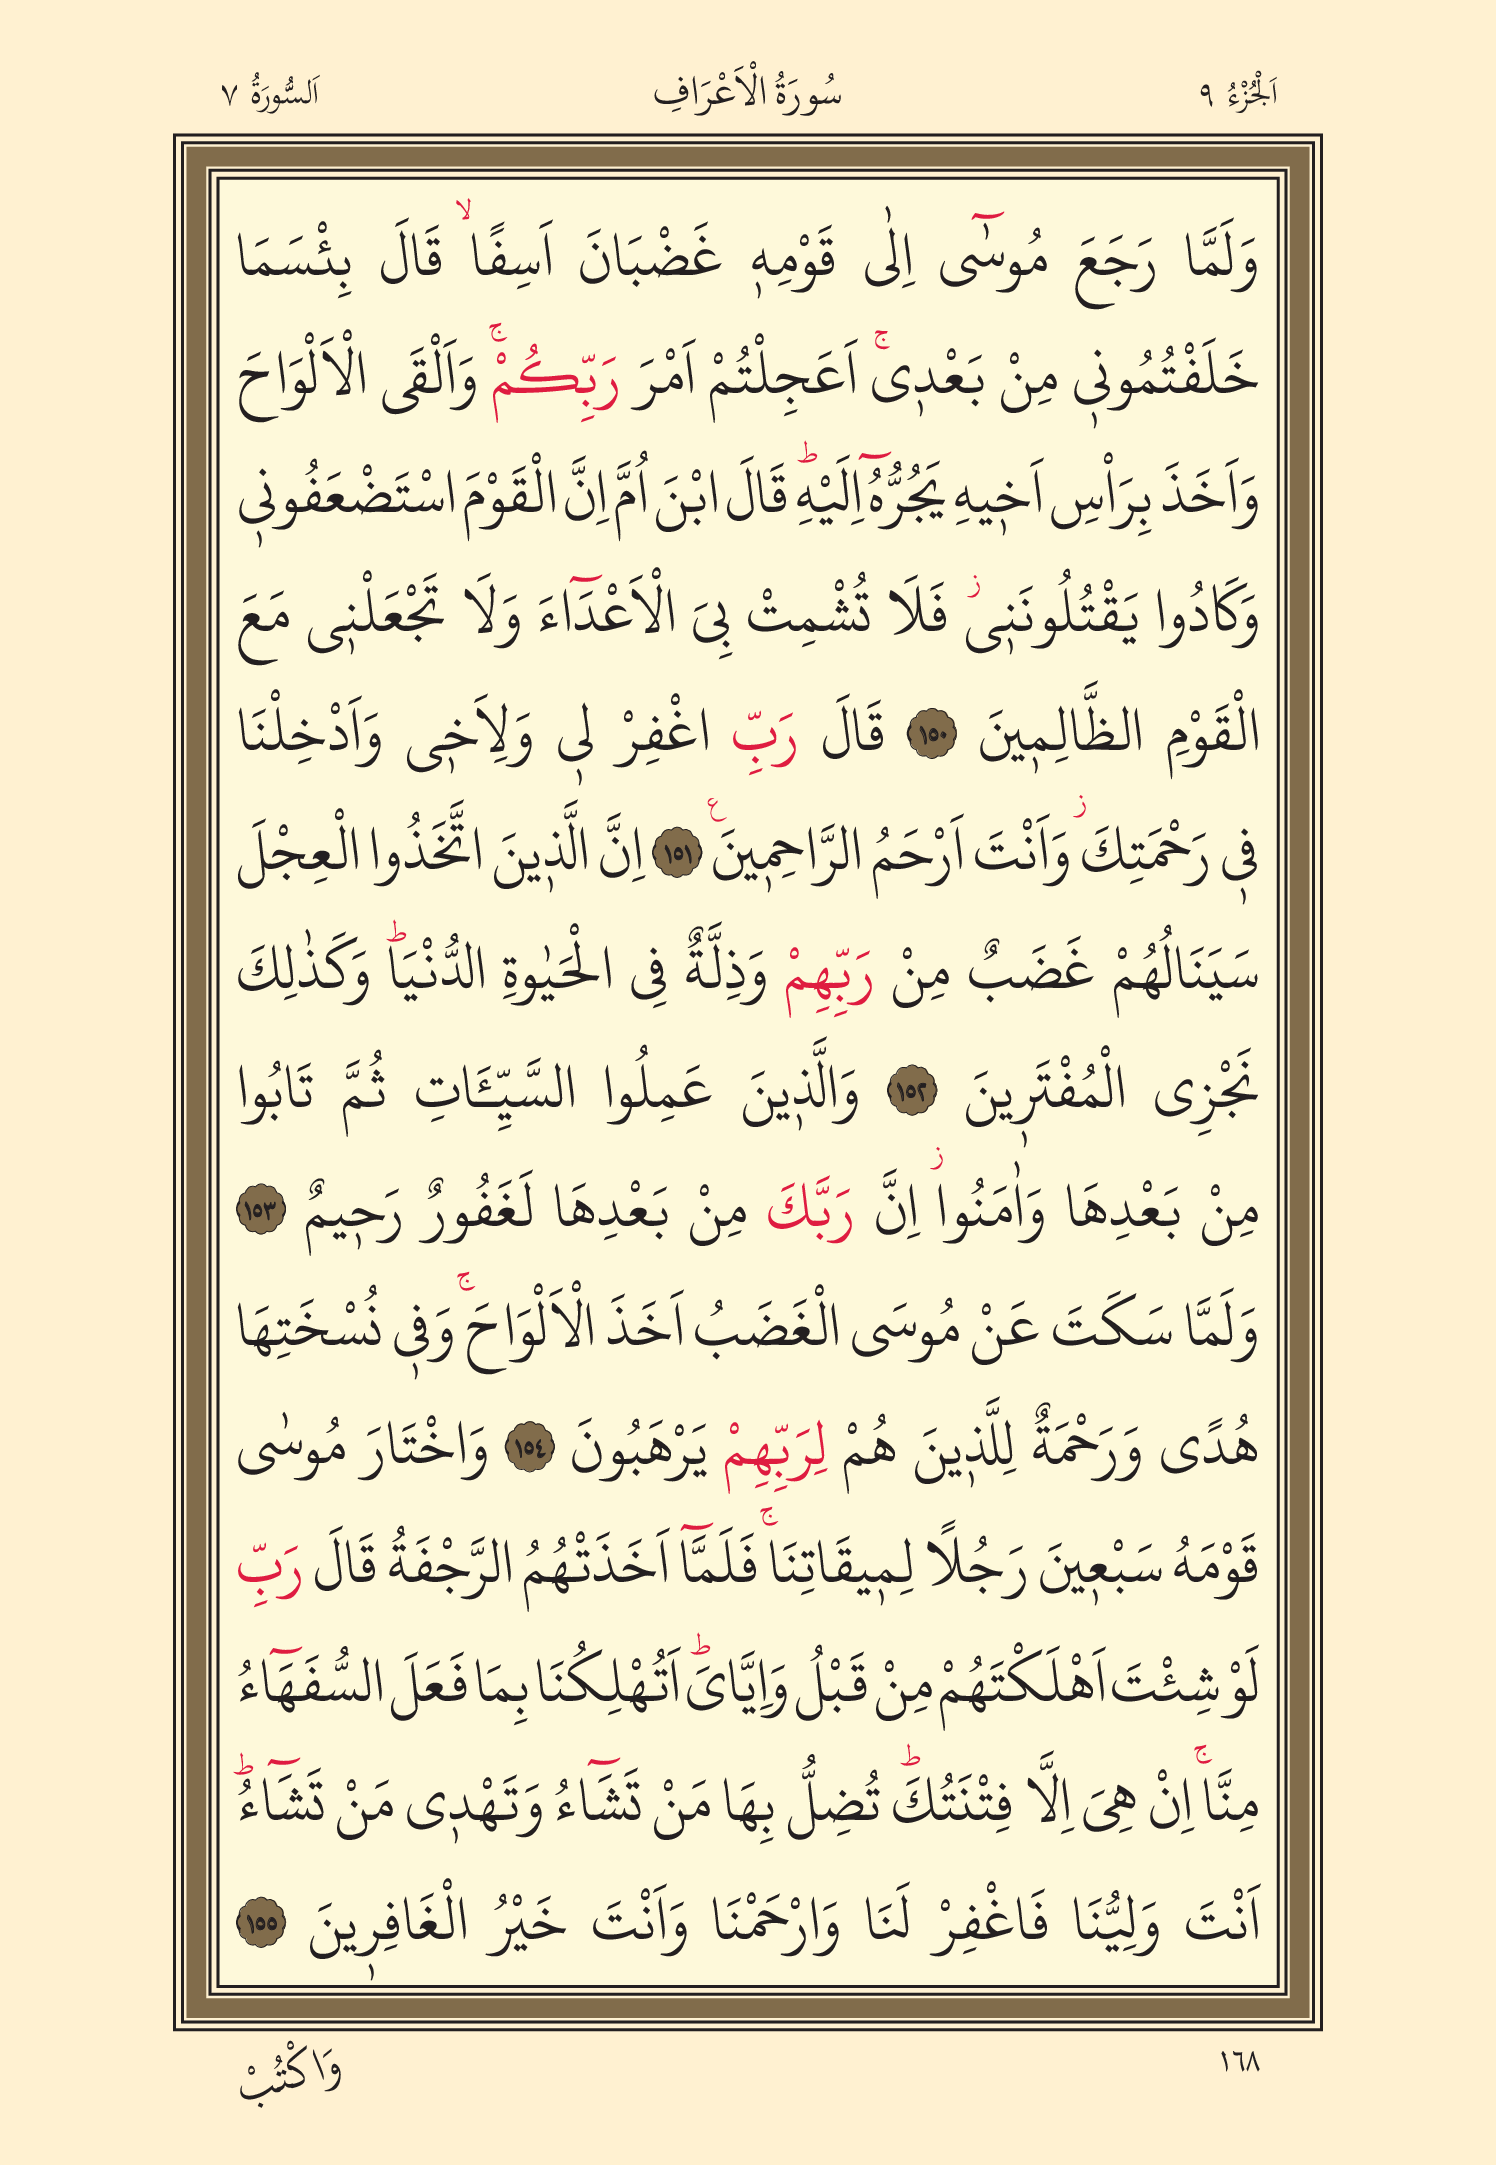 اَلْجُزْءُ ٩
سُورَةُ الْاَعْرَافِ
اَلسُّورَةُ ٧
وَلَمَّا رَجَعَ مُوسٰٓى اِلٰى قَوْمِهٖ غَضْبَانَ اَسِفًاۙ قَالَ بِئْسَمَا
خَلَفْتُمُونٖى مِنْ بَعْدٖىۚ اَعَجِلْتُمْ اَمْرَ رَبِّكُمْۚ وَاَلْقَى الْاَلْوَاحَ
وَاَخَذَ بِرَاْسِ اَخٖيهِ يَجُرُّهُٓ اِلَيْهِؕ قَالَ ابْنَ اُمَّ اِنَّ الْقَوْمَ اسْتَضْعَفُونٖى
وَكَادُوا يَقْتُلُونَنٖىؗ فَلَا تُشْمِتْ بِىَ الْاَعْدَٓاءَ وَلَا تَجْعَلْنٖى مَعَ
الْقَوْمِ الظَّالِمٖينَ ١٥٠ قَالَ رَبِّ اغْفِرْ لٖى وَلِاَخٖى وَاَدْخِلْنَا
فٖى رَحْمَتِكَؗ وَاَنْتَ اَرْحَمُ الرَّاحِمٖينَ ع ١٥١ اِنَّ الَّذٖينَ اتَّخَذُوا الْعِجْلَ
سَيَنَالُهُمْ غَضَبٌ مِنْ رَبِّهِمْ وَذِلَّةٌ فِى الْحَيٰوةِ الدُّنْيَاؕ وَكَذٰلِكَ
نَجْزِى الْمُفْتَرٖينَ ١٥٢ وَالَّذٖينَ عَمِلُوا السَّيِّـَٔاتِ ثُمَّ تَابُوا
مِنْ بَعْدِهَا وَاٰمَنُواؗ اِنَّ رَبَّكَ مِنْ بَعْدِهَا لَغَفُورٌ رَحٖيمٌ ١٥٣
وَلَمَّا سَكَتَ عَنْ مُوسَى الْغَضَبُ اَخَذَ الْاَلْوَاحَۚ وَفٖى نُسْخَتِهَا
هُدًى وَرَحْمَةٌ لِلَّذٖينَ هُمْ لِرَبِّهِمْ يَرْهَبُونَ ١٥٤ وَاخْتَارَ مُوسٰى
قَوْمَهُ سَبْعٖينَ رَجُلًا لِمٖيقَاتِنَاۚ فَلَمَّٓا اَخَذَتْهُمُ الرَّجْفَةُ قَالَ رَبِّ
لَوْ شِئْتَ اَهْلَكْتَهُمْ مِنْ قَبْلُ وَاِيَّاىَؕ اَتُهْلِكُنَا بِمَا فَعَلَ السُّفَهَٓاءُ
مِنَّاۚ اِنْ هِىَ اِلَّا فِتْنَتُكَؕ تُضِلُّ بِهَا مَنْ تَشَٓاءُ وَتَهْدٖى مَنْ تَشَٓاءُؕ
اَنْتَ وَلِيُّنَا فَاغْفِرْ لَنَا وَارْحَمْنَا وَاَنْتَ خَيْرُ الْغَافِرٖينَ ١٥٥
١٦٨
وَاكْتُبْ